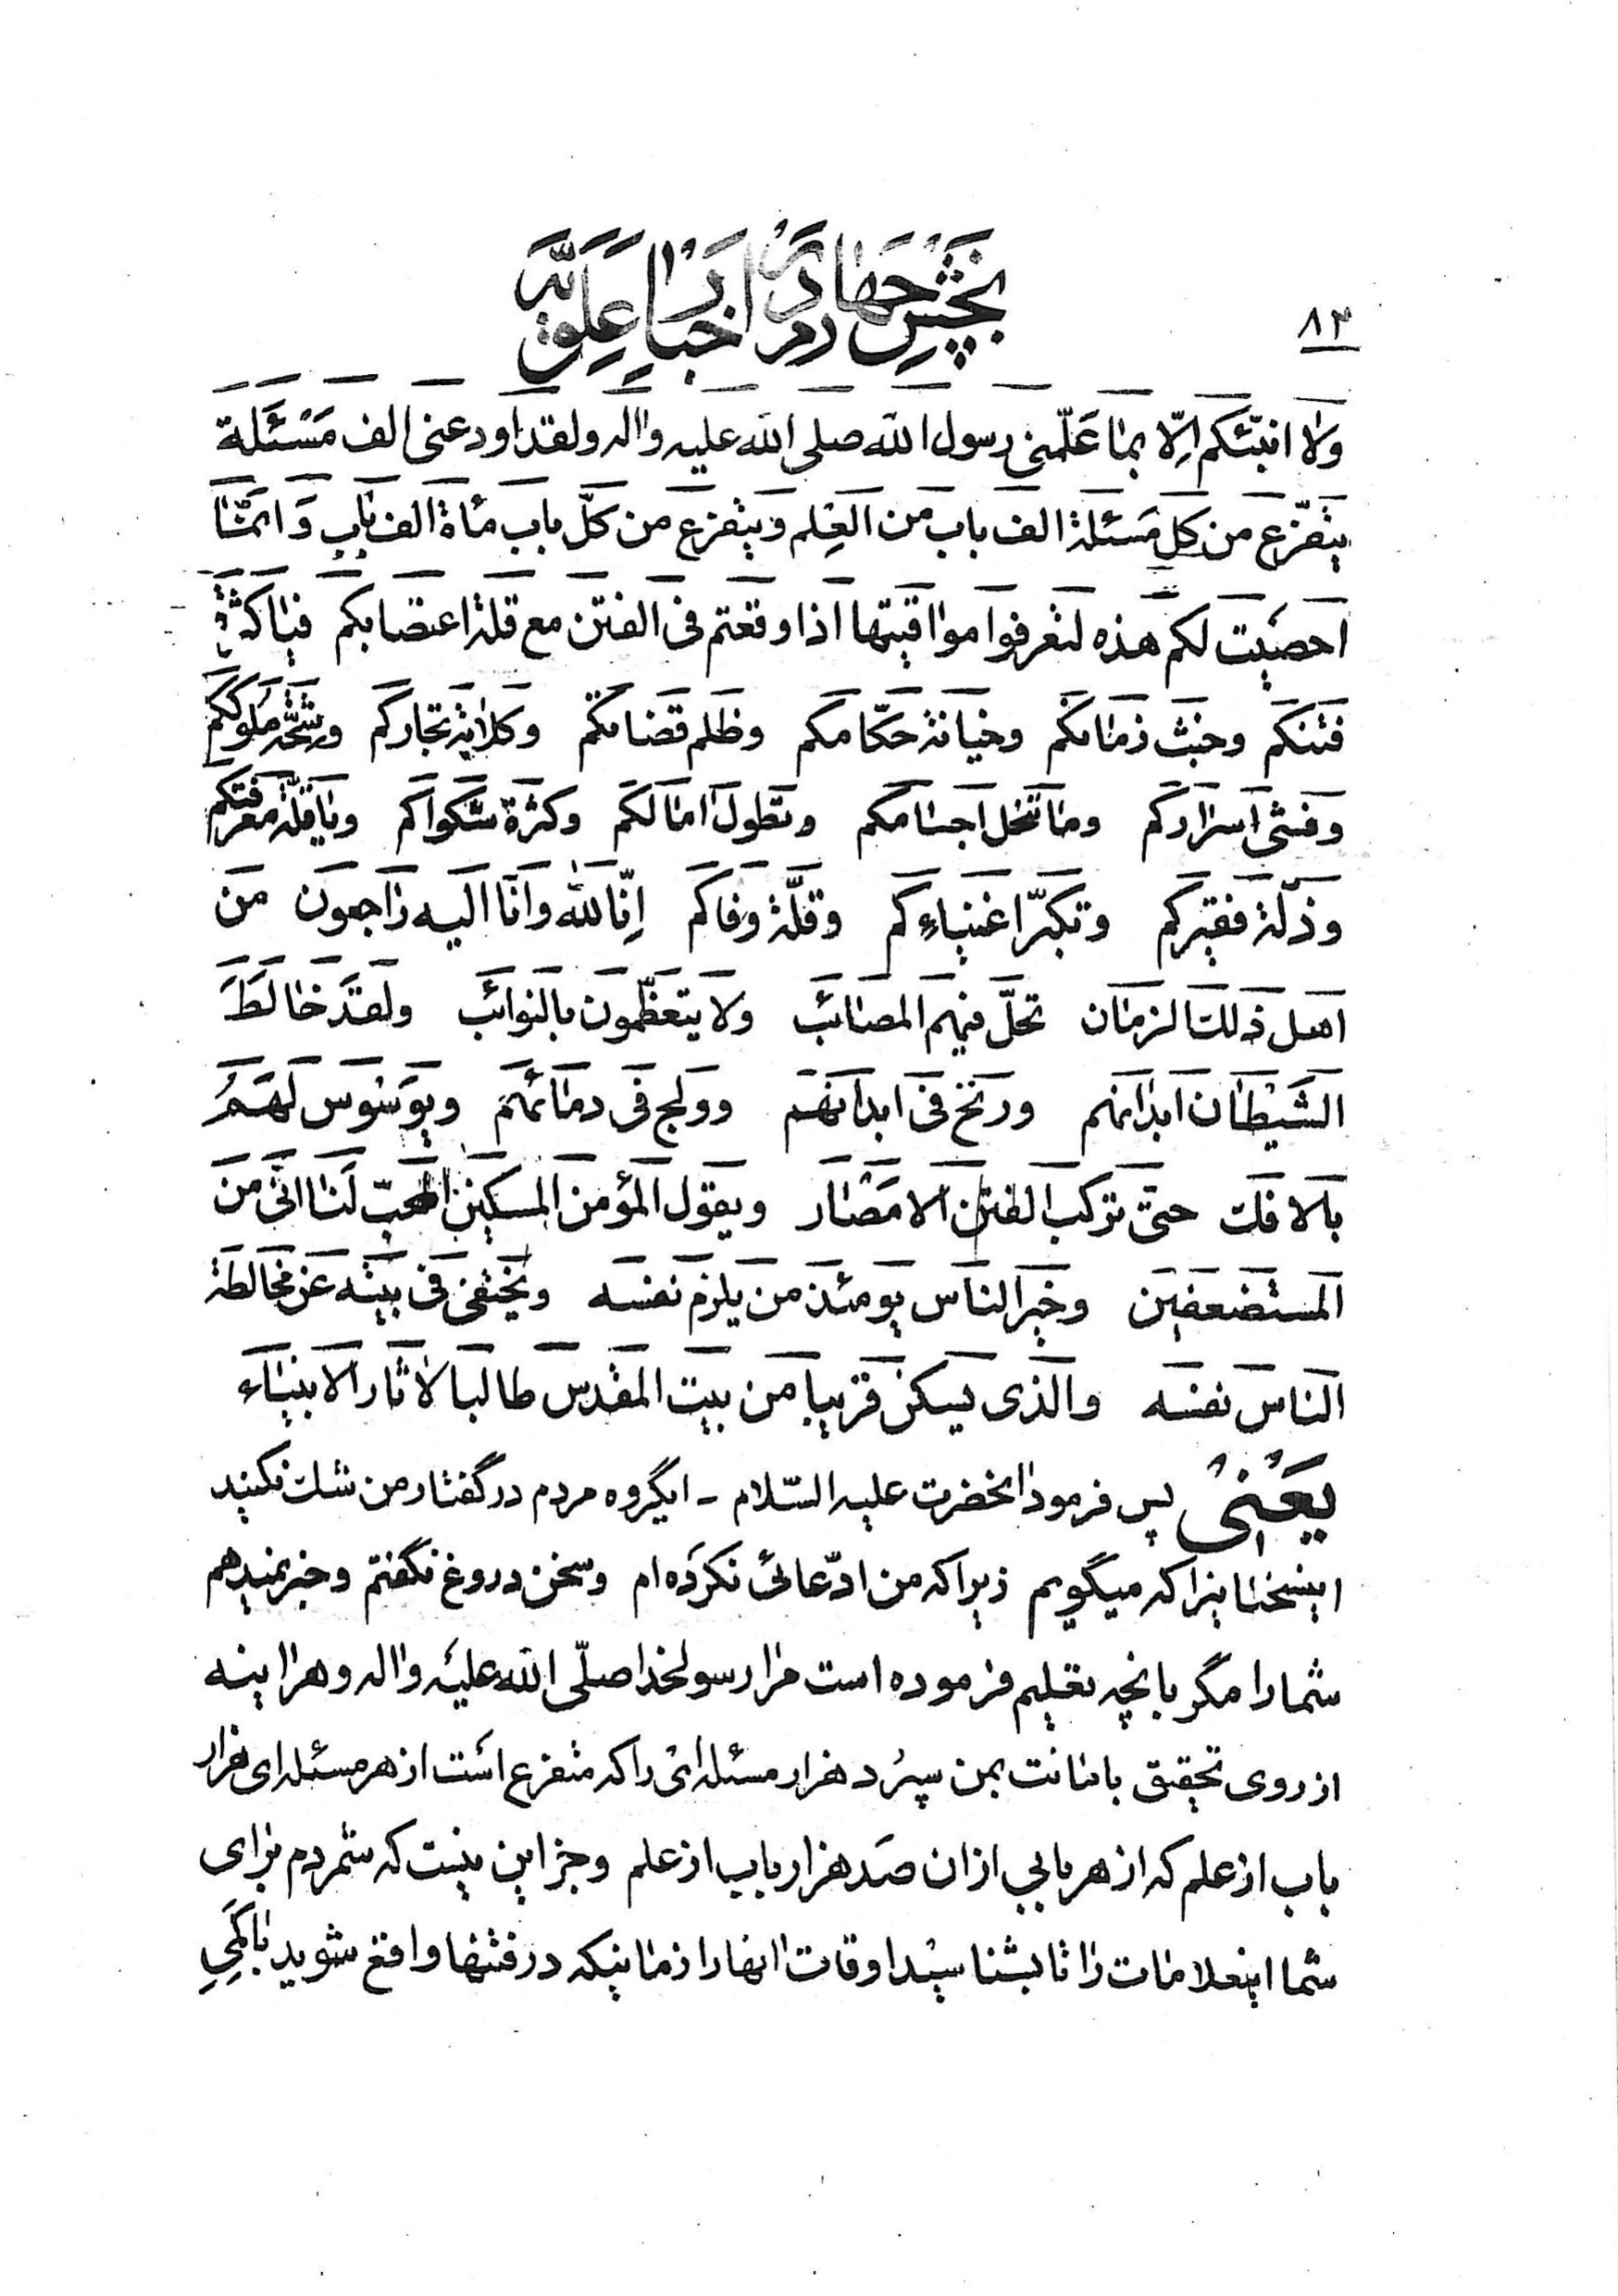 بخش چهارم در اخبار علویّه
۸۳
ولا انبّئكم اِلّا بما عَلّمنى رسول الله صلى الله عليه واله ولقد اودعنى الف مَسْئَلة
يتفرّع من كل مَسئلة الف باب من العِلم ويتفرّع من كلّ باب مأة الف باب وَانمّا
احصيت لكم هذه لتعرفوا مواقيتها اذا وقعتم فى الفتن مع قلة اعتصابكم فيا كثرة
فتنكم وخبث زمانكم وخيانة حكّامكم وظلم قضاتكم وكلابة تجاركم وشحّة ملوككم
وفشى اسراركم وما تنحل اجسامكم وتطول امالكم وكثرة شكواكم ويا قلّة معرفتكم
وذلّة فقيركم وتكبّر اغنياءكم وقلّة وفاكم اِنّا لله وانّا اليه راجعون من
اهل ذلك الزمان تحلّ فيهم المصائب ولا يتعظّمون بالنوائب ولقد خالطَ
الشيطان ابدانهم ورنخ فى ابدانهم وولج فى دمائهم ويوسوس لهم
بالافك حتى تركب الفتن الامصار ويقول المؤمن المسكين المحبّ لنا انّى من
المستضعفين وخير الناس يومئذ من يلزم نفسه ويختفى فى بيته عن مخالطة
الناس نفسه والذى يسكن قريبا من بيت المقدس طالبا لاثار الانبياء
يعنى پس فرمود انحضرت عليه السّلام - ايگروه مردم در گفتار من شك نكنيد
اينسخنانيرا كه ميگويم زيرا كه من ادّعائى نكرده ام وسخن دروغ نگفتم وخبر نميدهم
شما را مگر بانچه تعليم فرموده است مرا رسولخدا صلّى الله عليه واله وهراينه
از روى تحقيق بامانت بمن سپرد هزار مسئله اى را كه متفرع است از هر مسئله اى هزار
باب از علم كه از هر بابى از ان صد هزار باب از علم وجز اين نيست كه شمردم براى
شما اينعلامات را تا بشناسيد اوقات انها را زمانيكه در فتنها واقع شويد با كمىِ